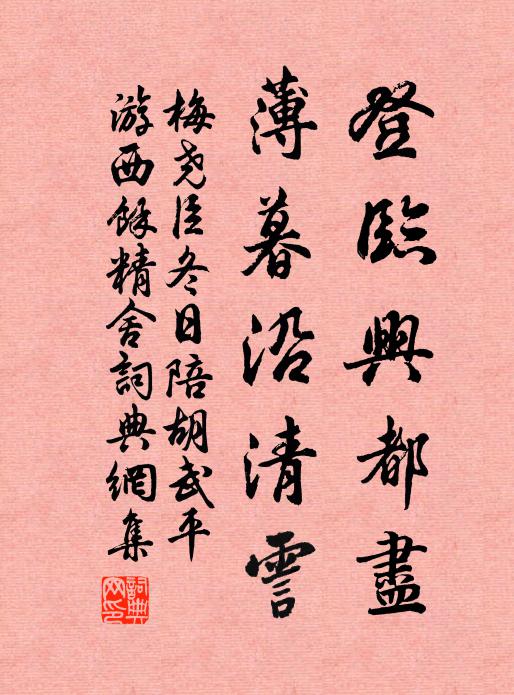 登臨興都盡
薄暮沿清霅
梅尧臣冬日陪胡武平
游西餘精舍詞典網集
詞典
网印